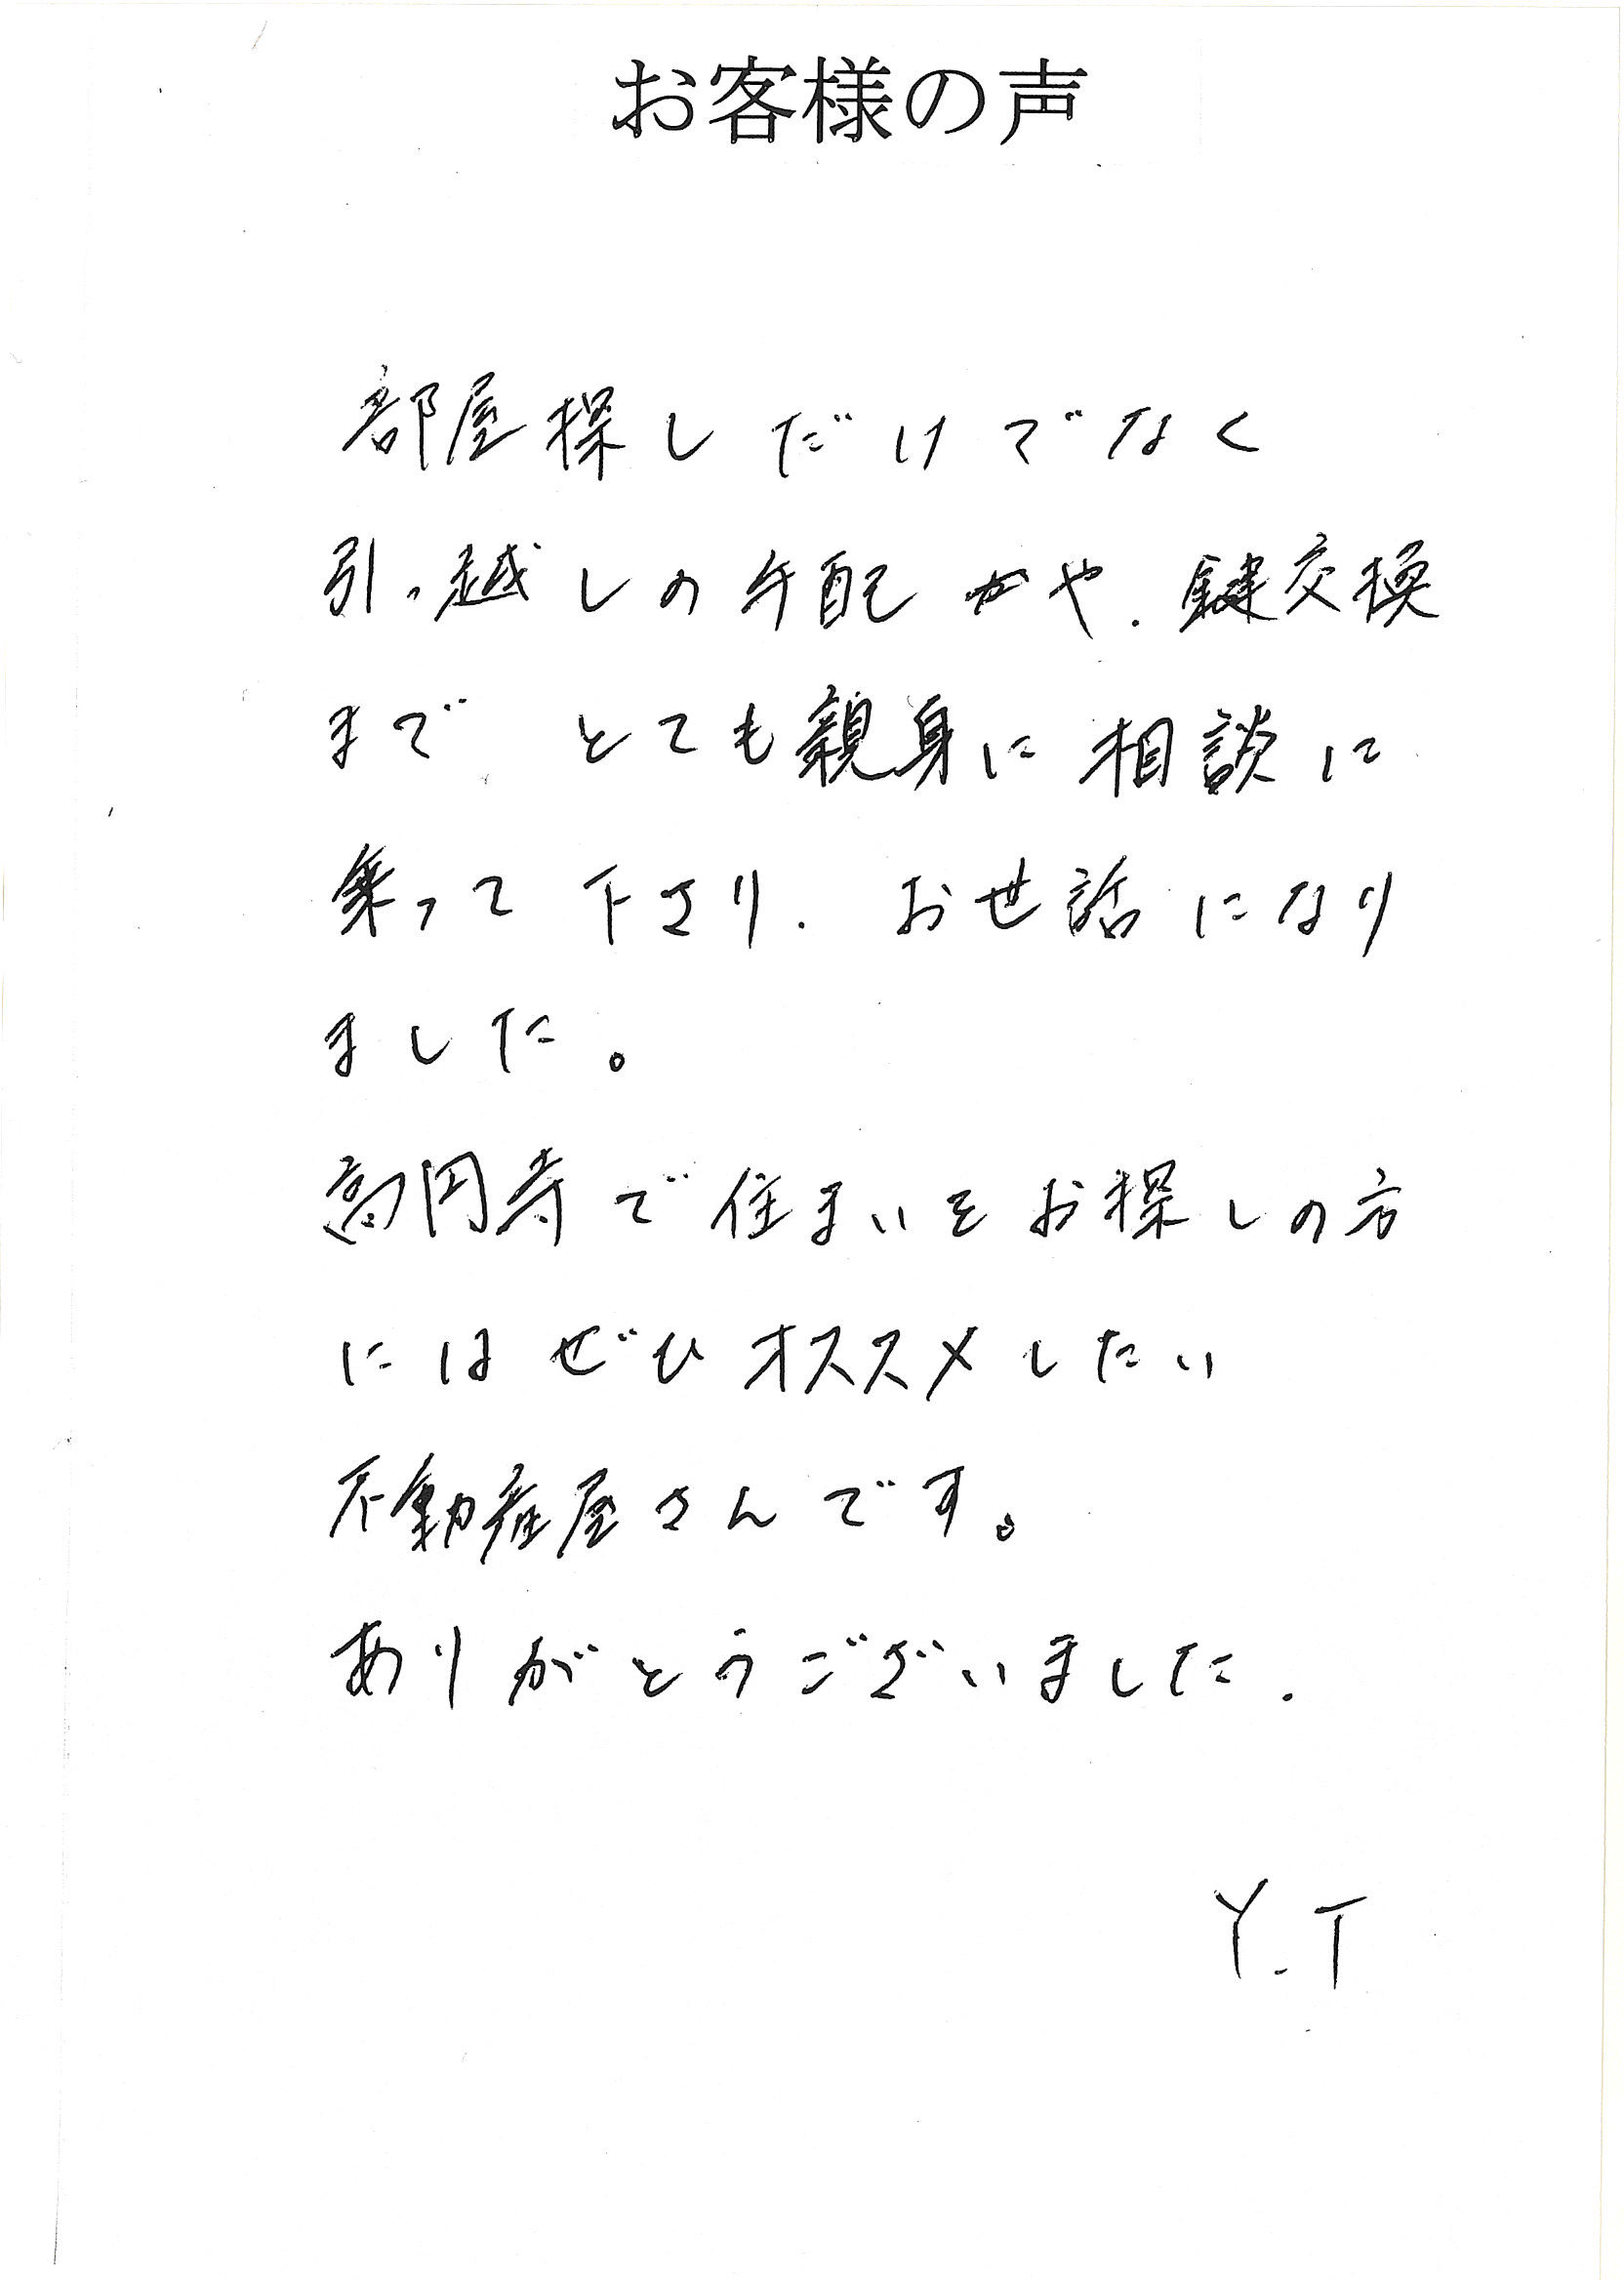 お客様の声
部屋探しだけでなく
引っ越しの手配や、鍵交換
まで とても親身に相談に
乗って下さり、お世話になり
ました。
高円寺で住まいをお探しの方
にはぜひオススメしたい
不動産屋さんです。
ありがとうございました.
Y.T